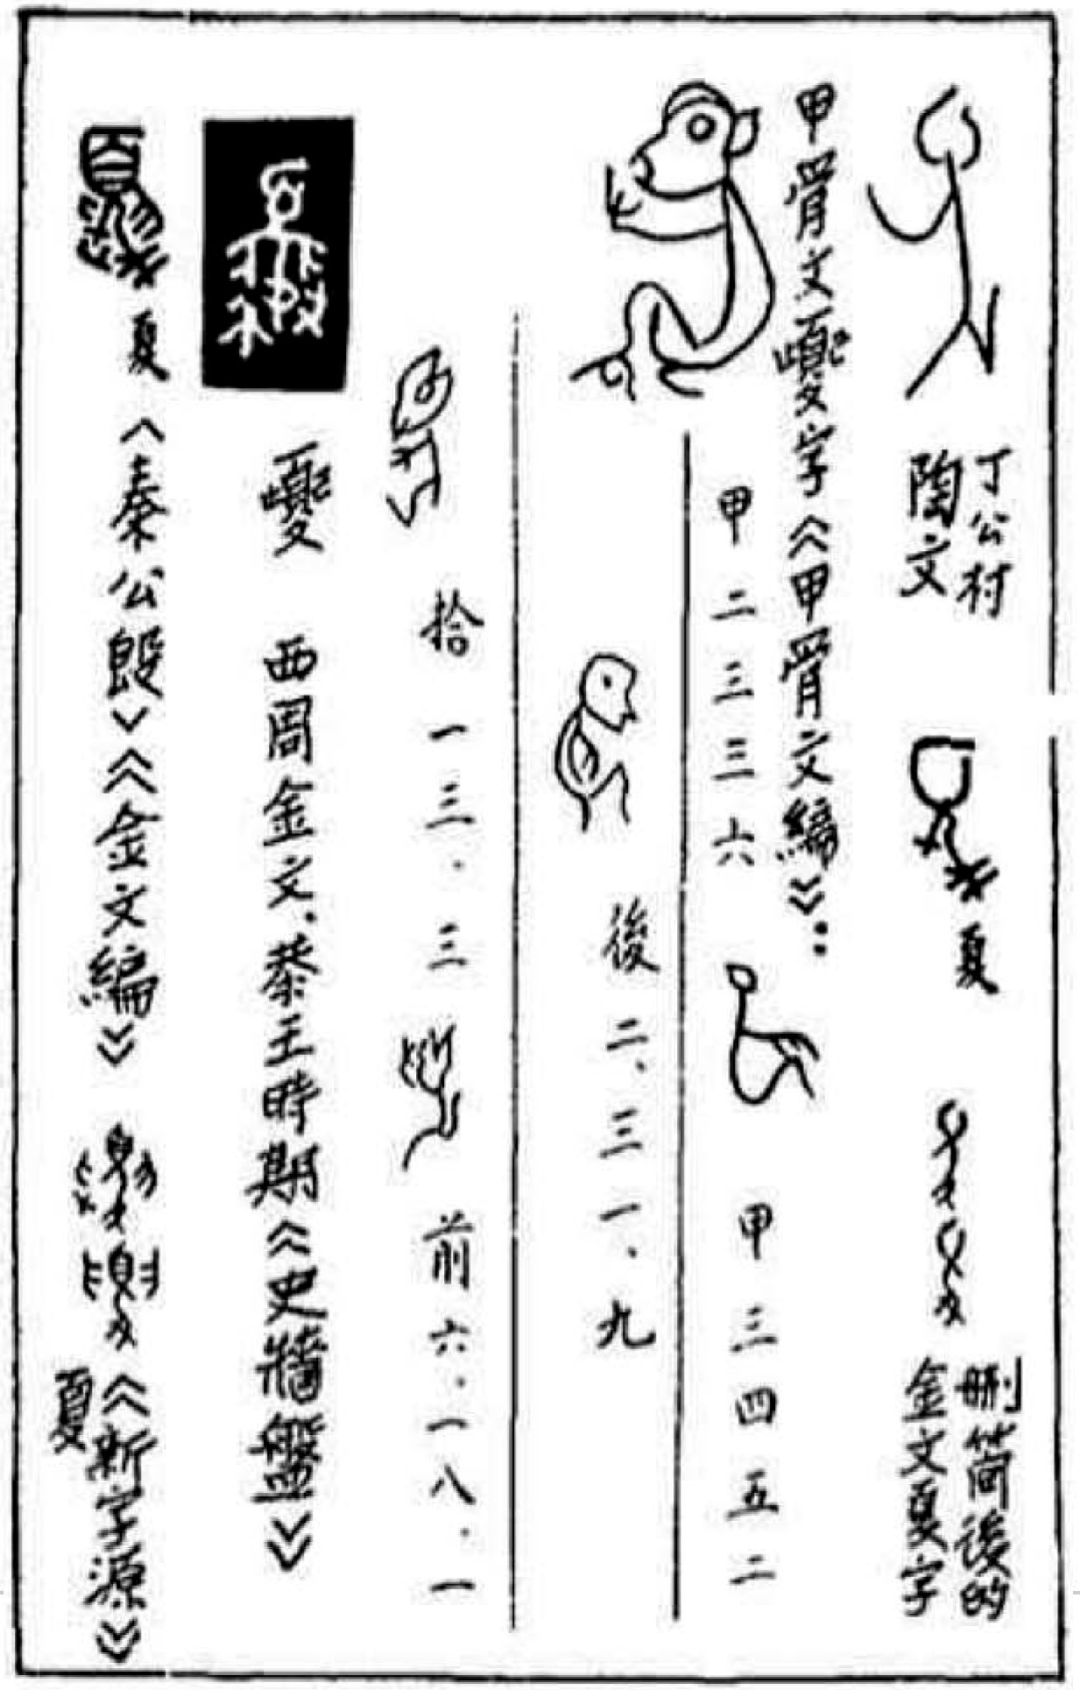 丁公村
陶文
夏
刪简後的
金文夏字
甲骨文夒字《甲骨文編》：
甲二三三六
甲三四五二
後二、三一、九
拾一三．三
前六．一八．一
夒 西周金文．恭王時期《史牆盤》
夏〈秦公𣪘〉《金文編》
《新字源》
夏